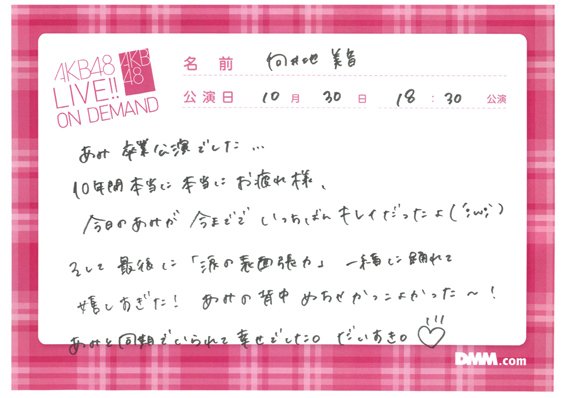 AKB48
LIVE!!
ON DEMAND
AKB
48
名前 向井地 美音
公演日 10月 30日 18:30 公演
あみ 卒業公演でした…
10年間本当に本当にお疲れ様、
今日のあみが 今までで いっちばん キレイだったよ(´;ω;`)
そして 最後に「涙の表面張力」 一緒に踊れて
嬉しすぎた! あみの背中 めちゃかっこよかった〜!
あみと同期でいられて幸せでした。だいすき。♡
DMM.com